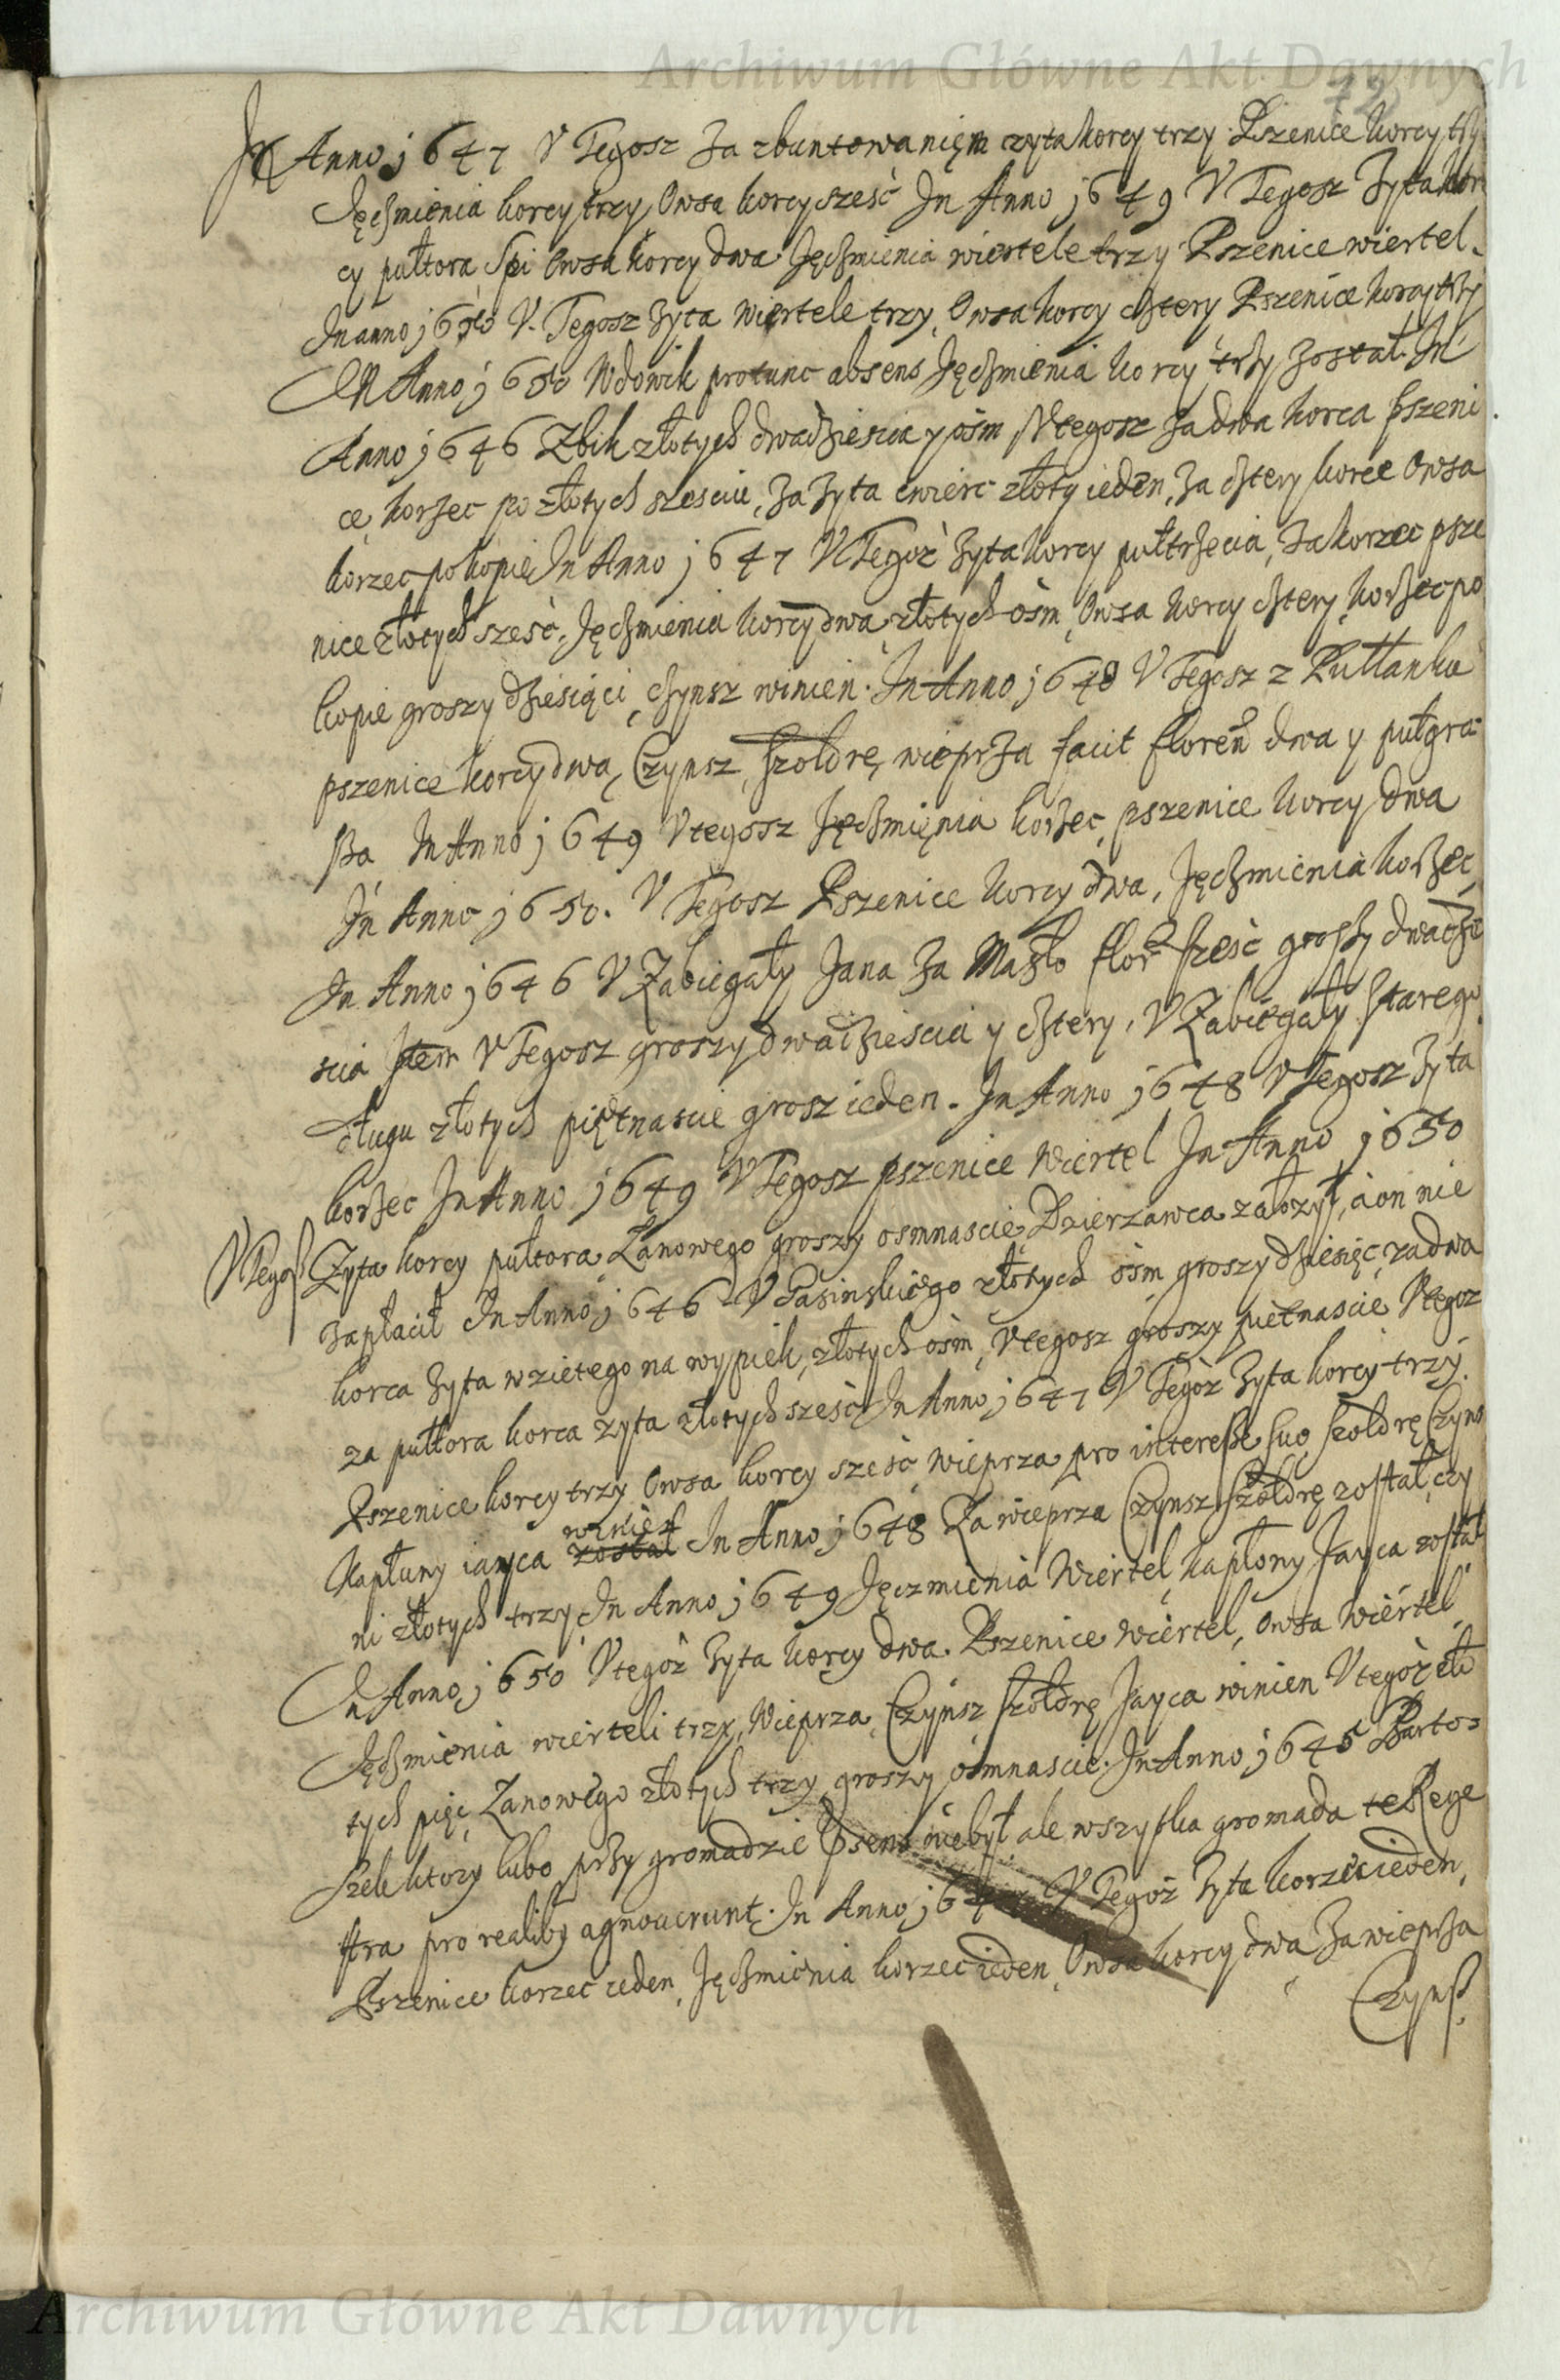 Archiwum Główne Akt Dawnych
72
In Anno 1647 V Tegosz Za zbuntowanięm czyta korcy trzy Pszenice korcy trzy
Jęczmienia korcy trzy Owsa korcy sześć In Anno 1649 V Tegosz Zyta kor
cy pułtora Owsa korcy dwa Jęczmienia wiertele trzy Pszenice wiertel.
In anno 1650 V Tegosz zyta wiertele trzy, Owsa korcy cztery Pszenice korcy trzy
In Anno 1650 Wdowik protunc absens Jęczmienia korcy trzy został. In
Anno 1646 Zbik złotych dwadziescia y ośm Vtegosz za dwa korca pszeni
ce, korzec po złotych szesciu, za zyta cwierc złoty ieden, za cztery korce Owsa
korzec po kopie, In Anno 1647 V Tegoż zyta korcy pułtrzecia, za korzec psze
nice złotych sześć, Jęczmienia korcy dwa, złotych ośm, Owsa korcy cztery, korzec po
kopie groszy dziesiąci, czynsz winien. In Anno 1648 V Tegosz z Pułłanka
pszenice korcy dwa, Czynsz, szołdrę, wieprza facit floren dwa y pułgro
sza In Anno 1649 Vtegosz Jęczmięnia korzec, pszenice korcy dwa
In Anno 1650. V Tegosz Pszenice korcy dwa, Jęczmienia korzec,
In Anno 1646 V Zabiegały Jana Za Masło flor sześć groszy dwadzie
scia Item V Tegosz groszy dwadziescia y cztery, V Zabiegały starego
długu złotych piętnascie grosz ieden. In Anno 1648 V Tegosz zyta
korzec In Anno 1649 V Tegosz pszenice Wiertel In Anno 1650
V Tegosz Zyta korcy pułtora, Łanowego groszy osmnascie Dzierzawca załozył, a on nie
zapłacił In Anno 1646 V Gasinskiego złotych ośm groszy dziesięć, za dwa
korca zyta wzietego na wypiek, złotych ośm, Vtegosz groszy piętnascie Vtegoz
za pułtora korca zyta złotych sześć In Anno 1647 V Tegoż zyta korcy trzy.
Pszenice korcy trzy Owsa korcy sześć wieprza pro interesse suo szołdrę Czyns
winięn
Kapłuny iayca został In Anno 1648 Za wieprza Czynsz szołdrę został, czy
ni złotych trzy In Anno 1649 Jęczmienia Wiertel, kapłony Jayca został
In Anno 1650 Vtegoż zyta korcy dwa. Pszenice wiertel, Owsa wiertel
Jęczmienia wierteli trzy, Wieprza, Czynsz szołdrę Jayca winien Vtegoż zło
tych pięć Łanowego złotych trzy groszy ośmnascie. In Anno 1645 Barto-
szek ktory lubo przy gromadzie niebył ale wszystka gromada te Rege
stra pro realiby agnoverunt. In Anno V Tegoż Zyta korzec ieden,
Pszenice korzec ieden, Jęczmienia korzec ieden, Owsa korcy dwa Za wieprza
Czynsz
Archiwum Główne Akt Dawnych